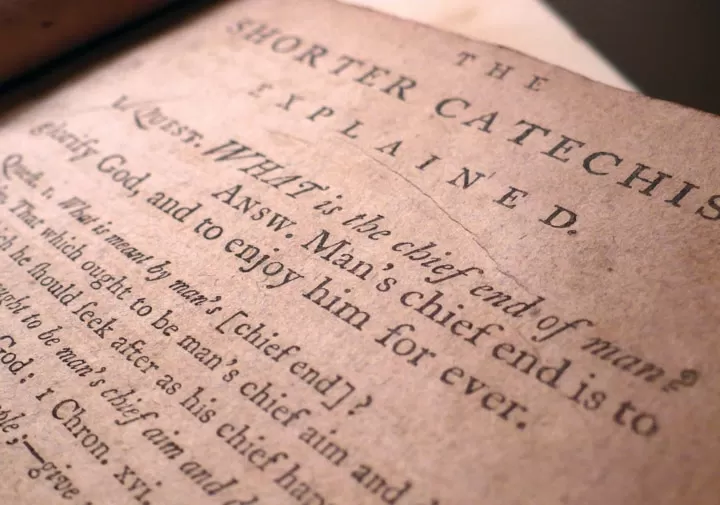 THE
SHORTER CATECHIS
EXPLAINED.
1. QUEST. WHAT is the chief end of man?
ANSW. Man's chief end is to
glorify God, and to enjoy him for ever.
Quest. 1. What is meant by man's [chief end]?
That which ought to be man's chief aim and
he ſhould ſeek after as his chief hap
ought to be man's chief aim and d
God: 1 Chron. xvi.
ple;—give